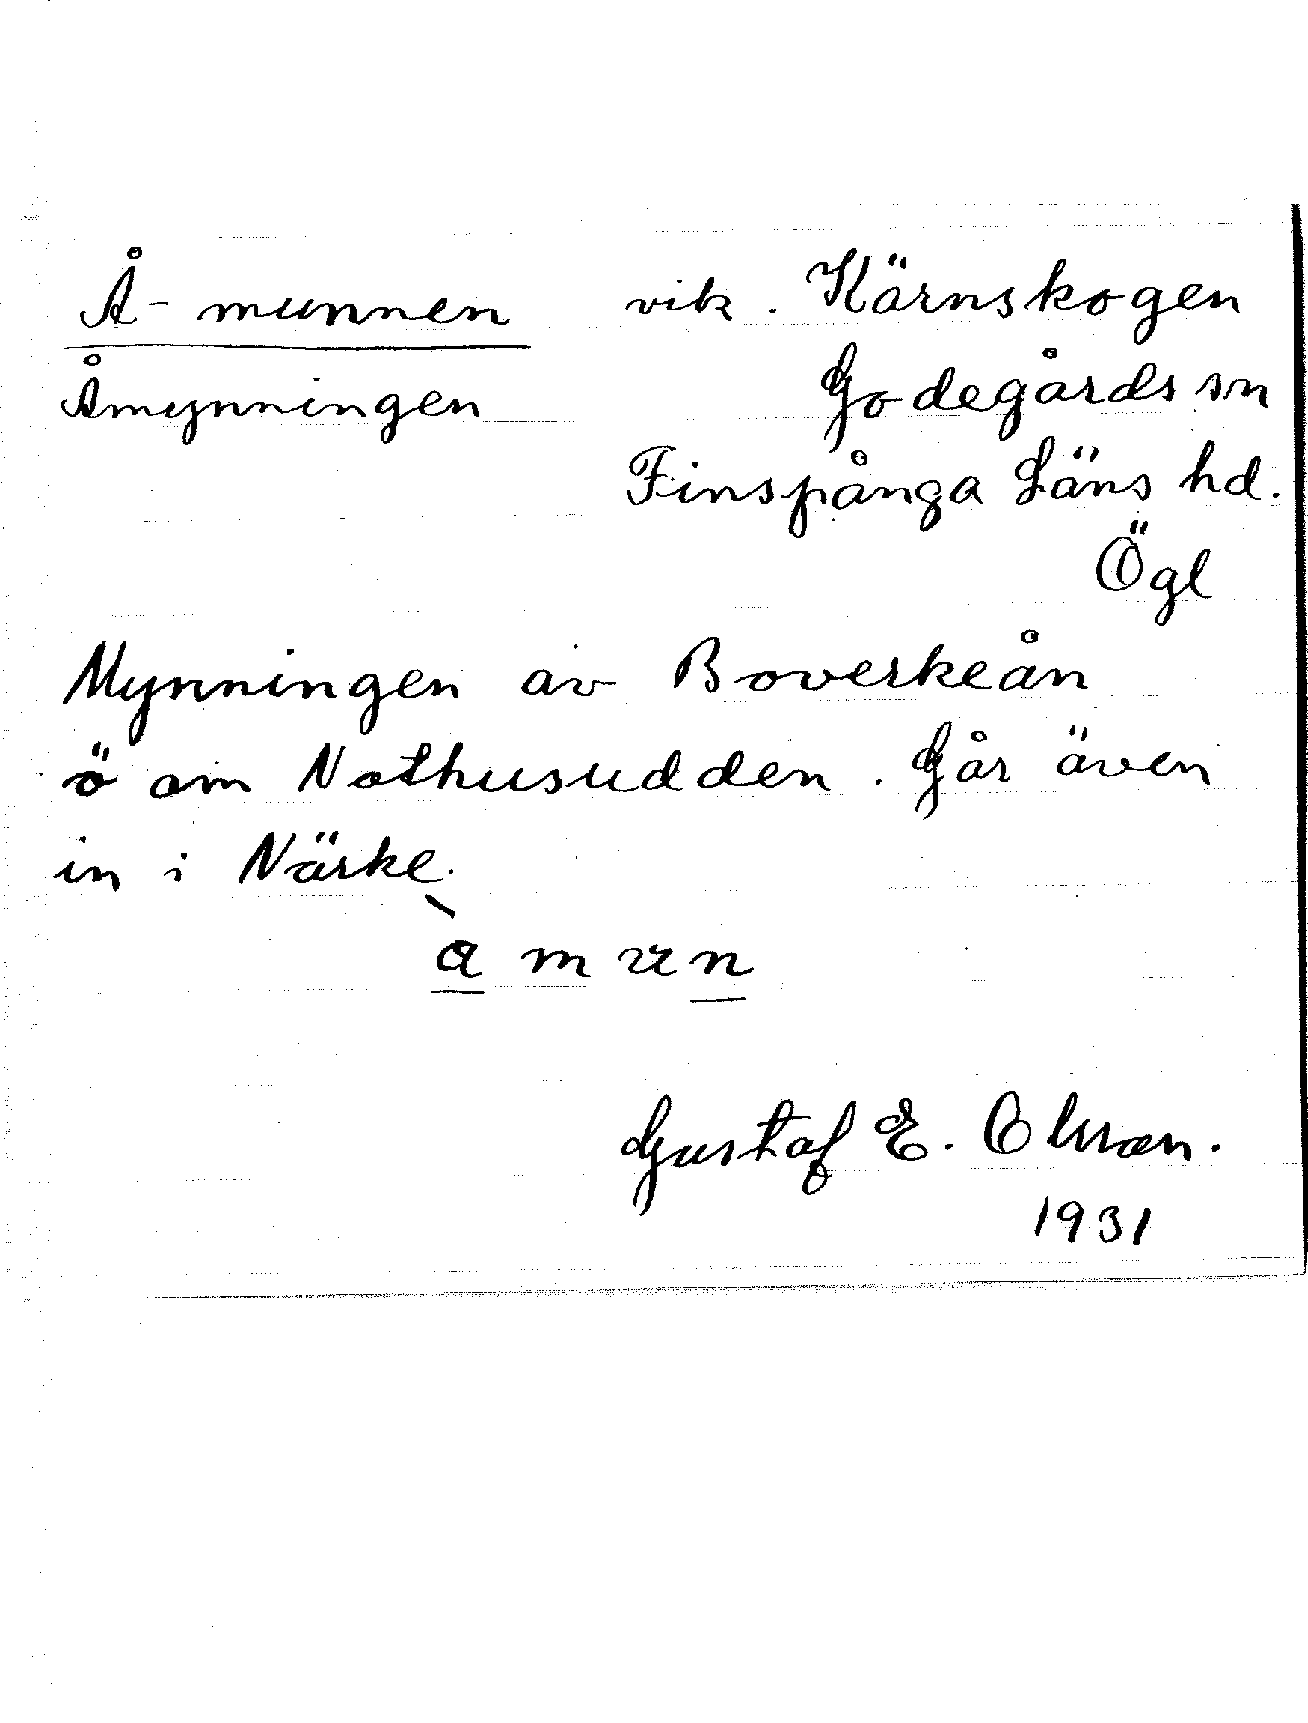 Å-munnen vik. Kärnskogen
Åmynningen Godegårds sn
Finspånga Läns hd.
Ögl
Mynningen av Boverkeån
ö om Nothusudden. Går även
in i Närke.
Gustaf E. Olsson.
1931